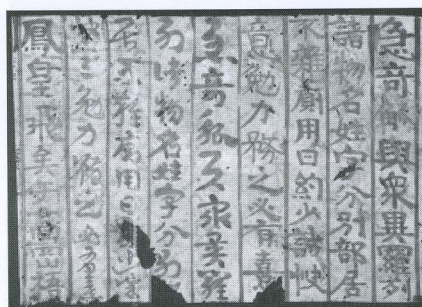 急奇觚與衆異羅列
諸物名姓字分別部居
不雜廁用日約少誠快
意勉力務之必有憙
急奇觚與衆異羅
列諸物名姓字分別
居不雜廁用日約少
意勉力務之必有憙
鳳皇飛矣于高梧